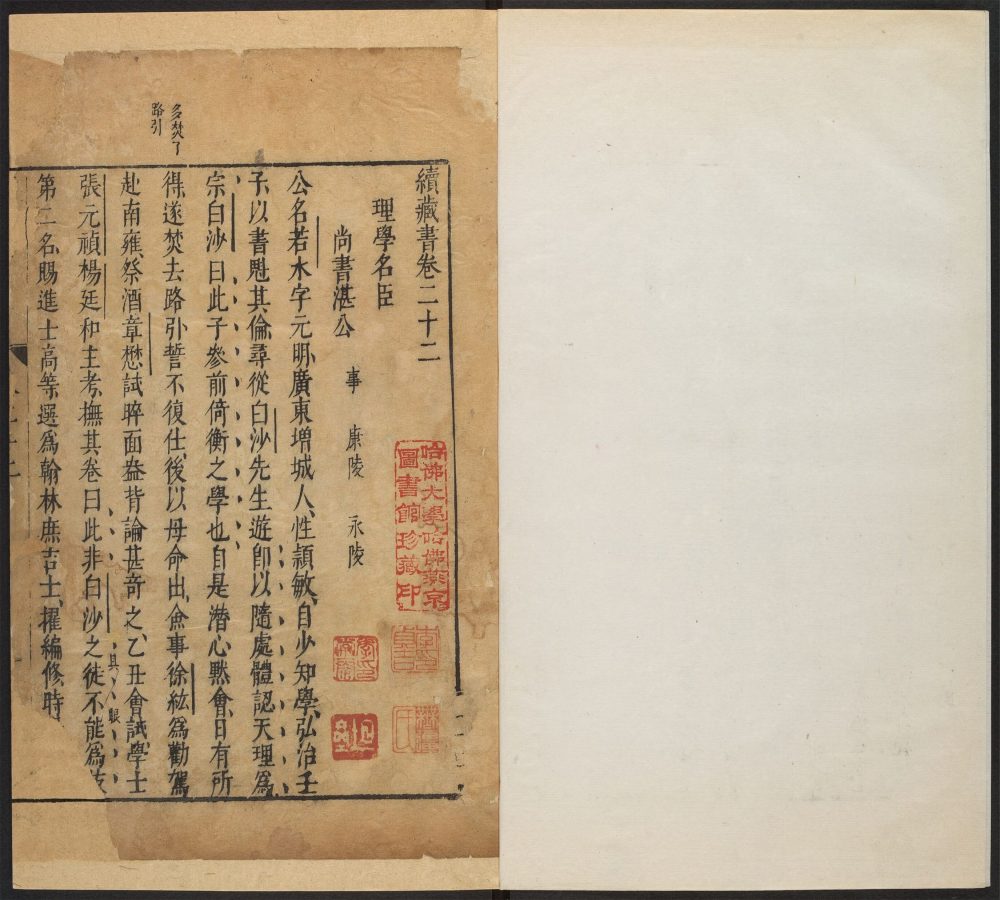 續藏書卷二十二
理學名臣
尚書湛公 事 康陵 永陵
公名若木字元明廣東增城人性頴敏自少知學弘治壬
子以書魁其倫尋從白沙先生遊即以隨處體認天理爲
宗白沙曰此子參前倚衡之學也自是潛心默會日有所
得遂焚去路引誓不復仕後以母命出僉事徐紘爲勸駕
赴南雍祭酒章懋試睟面盎背論甚奇之乙丑會試學士
張元禎楊廷和主考撫其卷曰此非白沙之徒不能爲
具眼
第二名賜進士高等選爲翰林庶吉士擢編修時
多焚了
路引
哈佛大學哈佛燕京
圖書館珍藏印